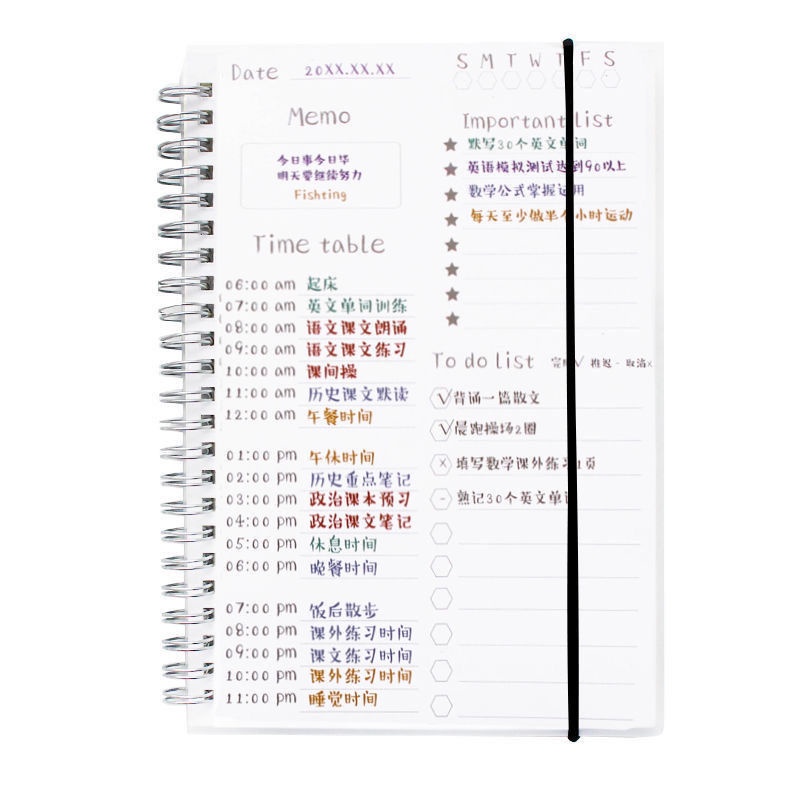 Date 20XX.XX.XX
Memo
今日事今日毕
明天要继续努力
Fishting
Time table
06:00 am 起床
07:00 am 英文单词训练
08:00 am 语文课文朗诵
09:00 am 语文课文练习
10:00 am 课间操
11:00 am 历史课文默读
12:00 am 午餐时间
01:00 pm 午休时间
02:00 pm 历史重点笔记
03:00 pm 政治课本预习
04:00 pm 政治课文笔记
05:00 pm 休息时间
06:00 pm 晚餐时间
07:00 pm 饭后散步
08:00 pm 课外练习时间
09:00 pm 课文练习时间
10:00 pm 课外练习时间
11:00 pm 睡觉时间
S M T W T F S
Important list
默写30个英文单词
英语模拟测试达到90以上
数学公式掌握运用
每天至少做半个小时运动
To do list 完成√ 推迟- 取消×
√ 背诵一篇散文
√ 晨跑操场2圈
× 填写数学课外练习1页
- 熟记30个英文单词